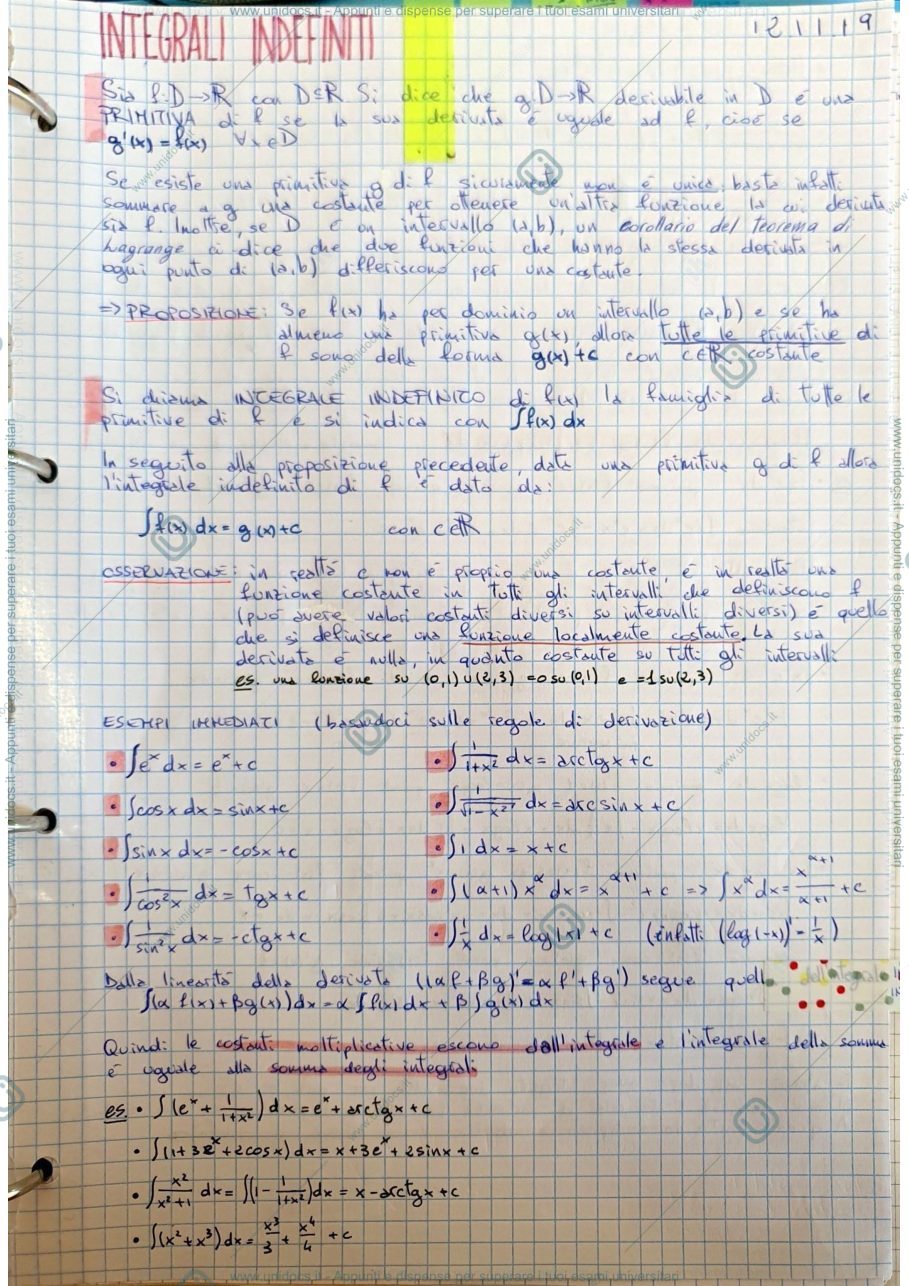 www.unidocs.it - Appunti e dispense per superare i tuoi esami universitari
INTEGRALI INDEFINITI
12.11.19
Sia f:D→R con D⊆R Si dice che g:D→R derivabile in D è una
PRIMITIVA di f se la sua derivata è uguale ad f, cioè se
g'(x) = f(x) ∀x∈D
Se esiste una primitiva g di f sicuramente non è unica, basta infatti
sommare a g una costante per ottenere un'altra funzione la cui derivata
sia f. Inoltre, se D è un intervallo (a,b), un corollario del teorema di
Lagrange ci dice che due funzioni che hanno la stessa derivata in
ogni punto di (a,b) differiscono per una costante.
=> PROPOSIZIONE: Se f(x) ha per dominio un intervallo (a,b) e se ha
almeno una primitiva g(x), allora tutte le primitive di
f sono della forma g(x)+c con c∈R costante
Si chiama INTEGRALE INDEFINITO di f(x) la famiglia di tutte le
primitive di f e si indica con ∫f(x) dx
In seguito alla proposizione precedente, data una primitiva g di f allora
l'integrale indefinito di f è dato da:
∫f(x) dx = g(x)+c con c∈R
OSSERVAZIONE: in realtà c non è proprio una costante, è in realtà una
funzione costante in tutti gli intervalli che definiscono f
(può avere valori costanti diversi su intervalli diversi) è quello
che si definisce una funzione localmente costante. La sua
derivata è nulla, in quanto costante su tutti gli intervalli
es. una funzione su (0,1)∪(2,3) =0 su (0,1) e =1 su (2,3)
ESEMPI IMMEDIATI (basandoci sulle regole di derivazione)
• ∫e^x dx = e^x + c
• ∫ 1/(1+x²) dx = arctgx + c
• ∫cosx dx = sinx + c
• ∫ 1/√(1-x²) dx = arcsinx + c
• ∫sinx dx = -cosx + c
• ∫1 dx = x + c
• ∫ 1/cos²x dx = tgx + c
• ∫(α+1) x^α dx = x^(α+1) + c => ∫x^α dx = x^(α+1)/(α+1) + c
• ∫ 1/sin²x dx = -ctgx + c
• ∫ 1/x dx = log|x| + c (infatti (log(-x))' = 1/x)
Dalla linearità della derivata ((αf+βg)' = αf'+βg') segue quell dell'integrale
∫(αf(x)+βg(x))dx = α∫f(x)dx + β∫g(x)dx
Quindi le costanti moltiplicative escono dall'integrale e l'integrale della somma
è uguale alla somma degli integrali
es. • ∫(e^x + 1/(1+x²)) dx = e^x + arctgx + c
• ∫(1+3e^x+2cosx)dx = x+3e^x+2sinx+c
• ∫ x²/(x²+1) dx = ∫(1 - 1/(1+x²))dx = x - arctgx + c
• ∫(x²+x³)dx = x³/3 + x⁴/4 + c
www.unidocs.it - Appunti e dispense per superare i tuoi esami universitari